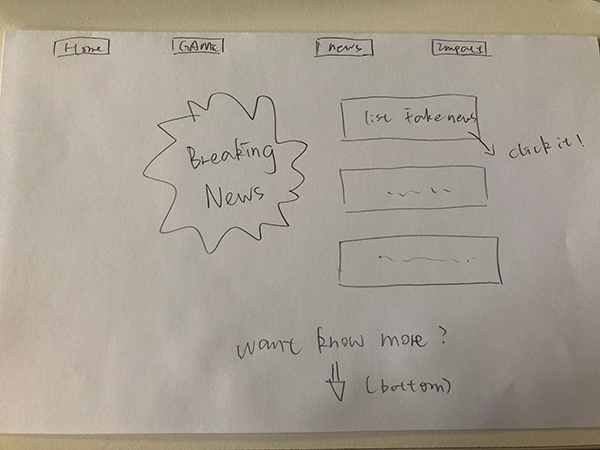 Home
GAME
news
Impact
Breaking
News
list Fake news
click it!
want know more?
(bottom)